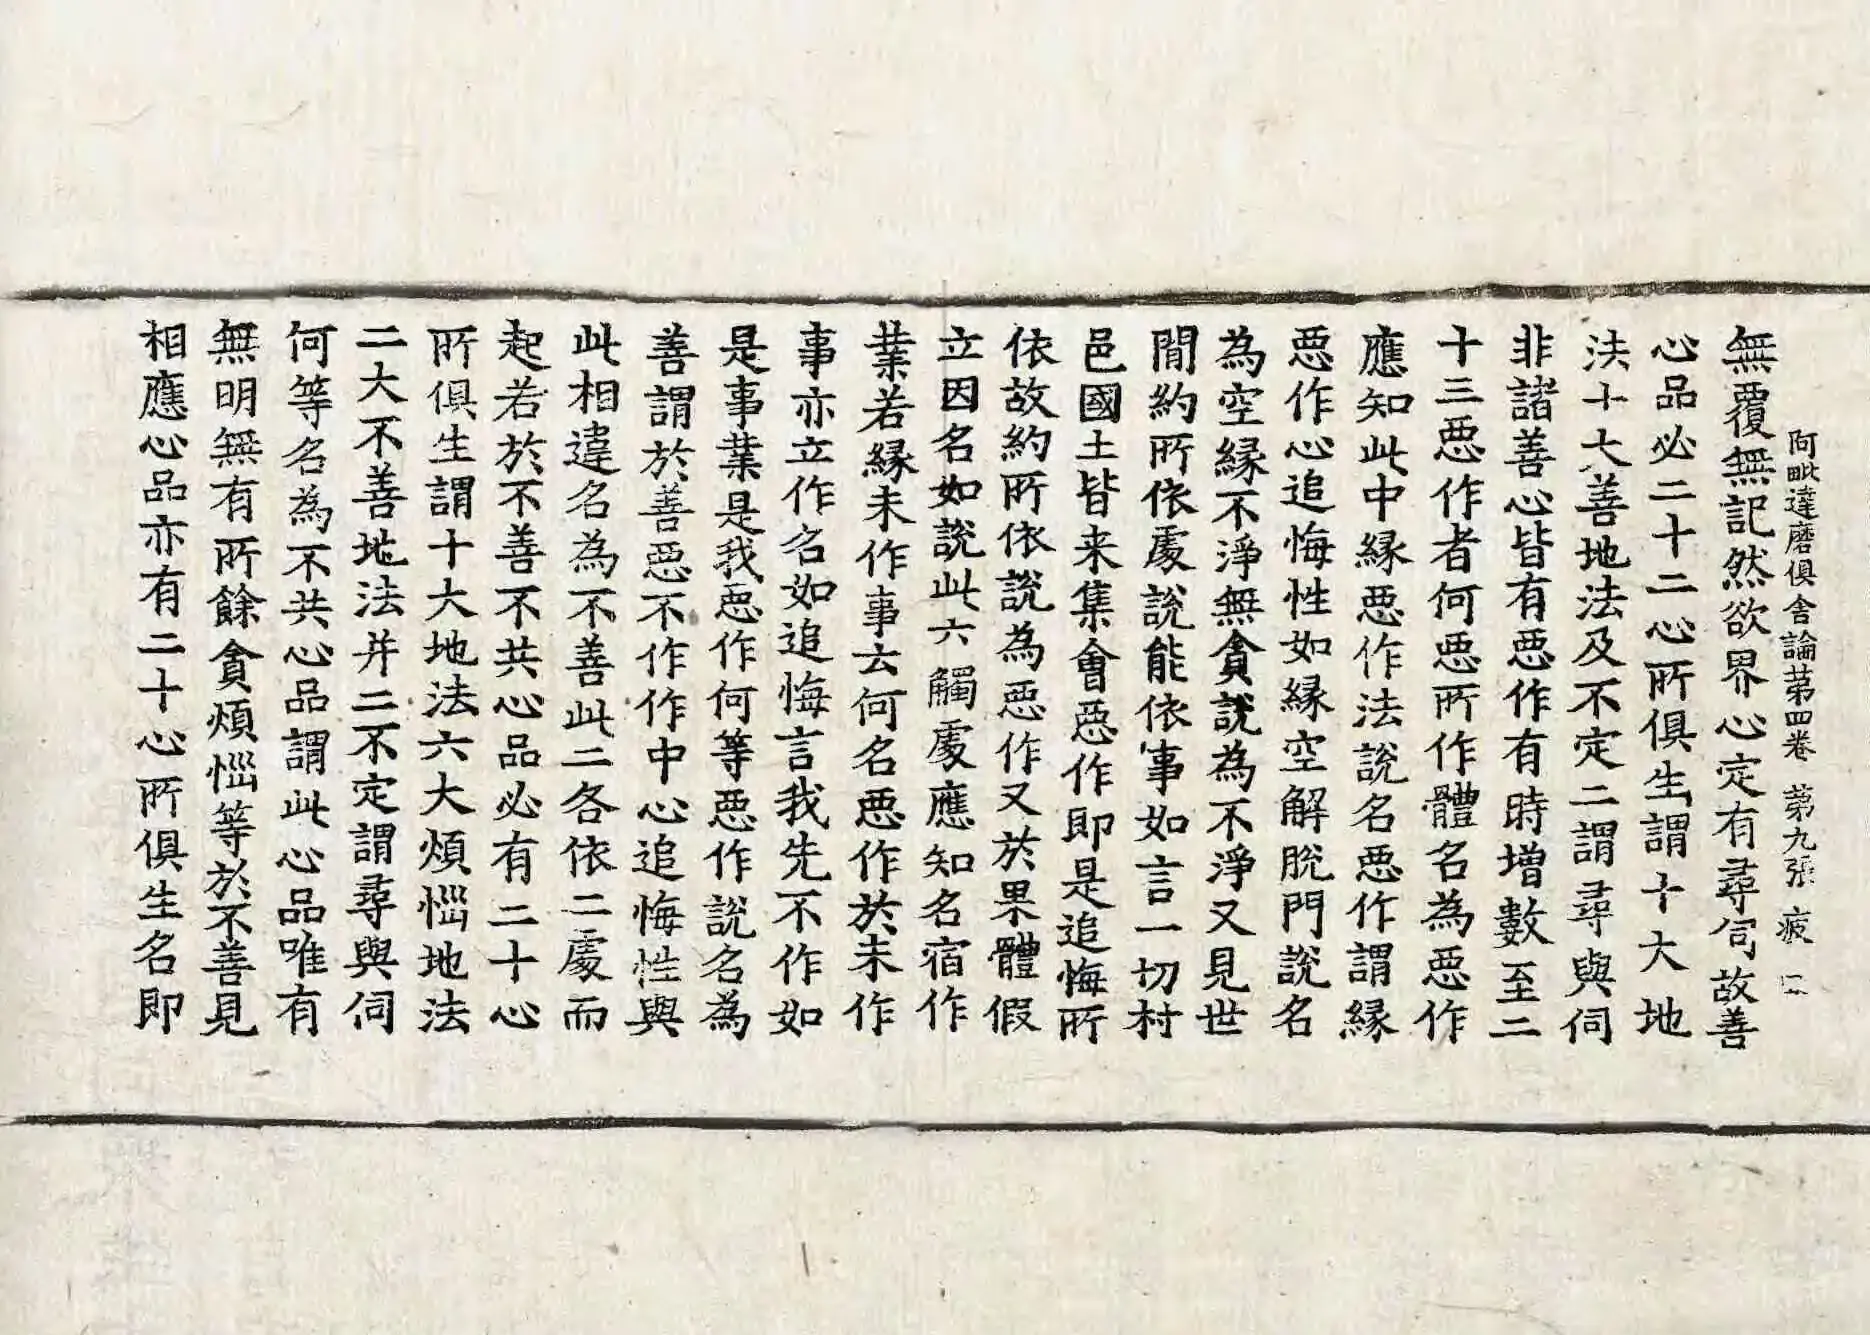 阿毗達磨俱舍論第四卷 第九張 疲
無覆無記然欲界心定有尋伺故善
心品必二十二心所俱生謂十大地
法十大善地法及不定二謂尋與伺
非諸善心皆有惡作有時增數至二
十三惡作者何惡所作體名為惡作
應知此中緣惡作法說名惡作謂緣
惡作心追悔性如緣空解脫門說名
為空緣不淨無貪說為不淨又見世
間約所依處說能依事如言一切村
邑國土皆来集會惡作即是追悔所
依故約所依說為惡作又於果體假
立因名如說此六觸處應知名宿作
業若緣未作事云何名惡作於未作
事亦立作名如追悔言我先不作如
是事業是我惡作何等惡作說名為
善謂於善惡不作作中心追悔性與
此相違名為不善此二各依二處而
起若於不善不共心品必有二十心
所俱生謂十大地法六大煩惱地法
二大不善地法并二不定謂尋與伺
何等名為不共心品謂此心品唯有
無明無有所餘貪煩惱等於不善見
相應心品亦有二十心所俱生名即